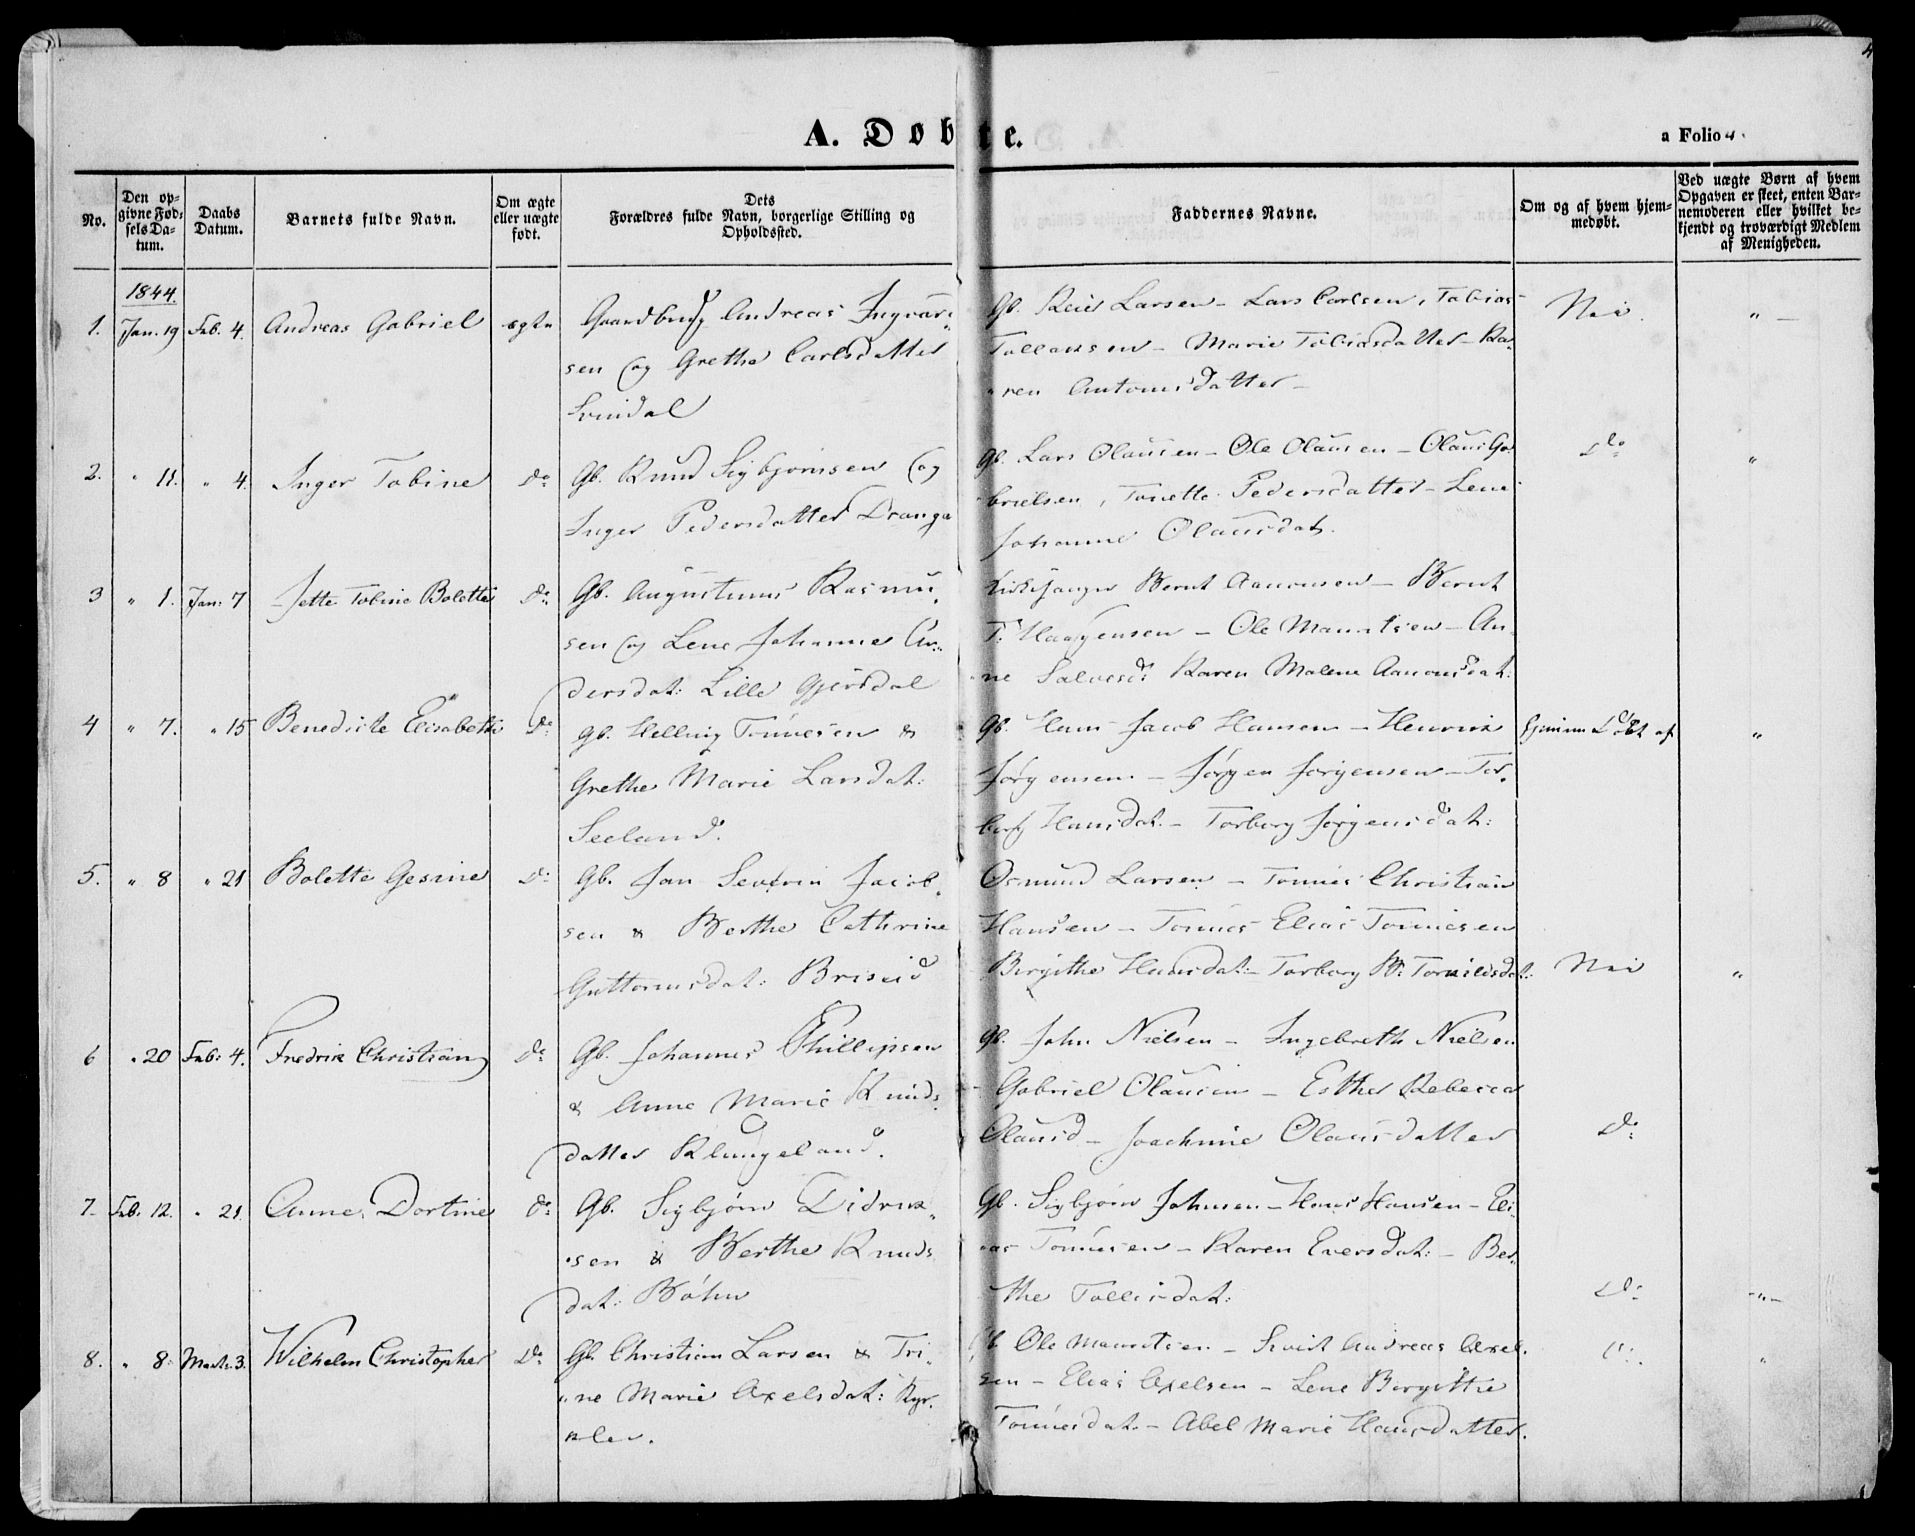 4
A. Døbte.
a Folio 4.
No.
Den op-
givne Fød-
sels Da-
tum.
Daabs
Datum.
Barnets fulde Navn.
Om ægte
eller uægte
født.
Dets
Forældres fulde Navn, borgerlige Stilling og
Opholdssted.
Faddernes Navne.
Om og af hvem hjem-
medøbt.
Ved uægte Børn af hvem
Opgaven er skeet, enten Bar-
nemoderen eller hvilket be-
kjendt og troværdigt Medlem
af Menigheden.
1844.
1. Jan. 19 Feb. 4. Andreas Gabriel ægte Gaardbrug Andreas Ingvar-
sen og Grethe Carlsdatter
Svindal
Gb. Reier Larsen - Lars Carlsen, Tobias
Tollaksen - Marie Tobiasdatter - Ka-
ren Antonisdatter -
Nei. " -
2. " 11. " 4. Inger Tobine do Gb. Knud Sigbjørnsen og
Inger Pedersdatter Dranga
Gb. Lars Olausen - Ole Olausen - Olaus Ga
brielsen, Tonette Pedersdatter - Lene
Johanne Olausdat.
do "
3 " 1. Jan: 7 Jette Tobine Bolette do Gb. Augustinus Rasmu-
sen og Lene Johanne An-
dersdat: Lille Gjersdal
Kirkesanger Bernt Aanonsen - Bernt
T. Haagensen - Ole Mauritsen - An-
ne Salvesd: Karen Malene Aanonsdat:
4 " 7. " 15 Benedicte Elisabeth do Gb. Helling Tønnesen &
Grethe Marie Larsdat:
Seeland.
Gb. Hans Jacob Hansen - Henrik
Jørgensen - Jørgen Jørgensen - Tor-
borg Hansdat. - Torborg Jørgensdat:
hjemme døbt af "
5. " 8 " 21 Bolette Gesine do Gb. Jan Severin Jacob-
sen & Berthe Cathrine
Guttormsdat: Briseid
Osmund Larsen - Tønnes Christian
Hansen - Tønnes Elias Tønnesen
Birgithe Hansdat: - Torborg B: Torkildsdat:
Nei "
6 " 20 Feb: 4. Fredrik Christian do Gb. Johannes Phillipsen
& Anne Marie Knuds
datter Klungeland.
Gb. John Nielsen - Ingebreth Nielsen
Gabriel Olausen - Esther Rebecca
Olausd - Joachime Olausdatter
do
7. Feb. 12. " 21. Anne Dortine do Gb. Sigbjørn Didrik-
sen & Berthe Knuds
dat: Bøhn
Gb. Sigbjørn Johnsen - Hans Hansen - Eli-
as Tønnesen - Karen Eversdat: - Ber-
the Tollisdat:
do -"-
8. " 8. Marts 3. Wilhelm Christopher do Gb. Christian Larsen & Tri-
ne Marie Axelsdat:
Gb. Ole Mauritsen - Andreas Axel-
sen - Elias Axelsen - Lene Birgitthe
Tønnesdat - Abel Marie Hansdatter.
do "